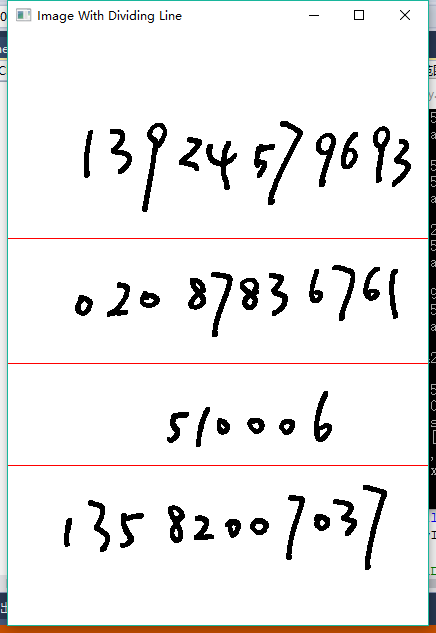 Image With Dividing Line
13924579693
020 87836761
510006
13582007037